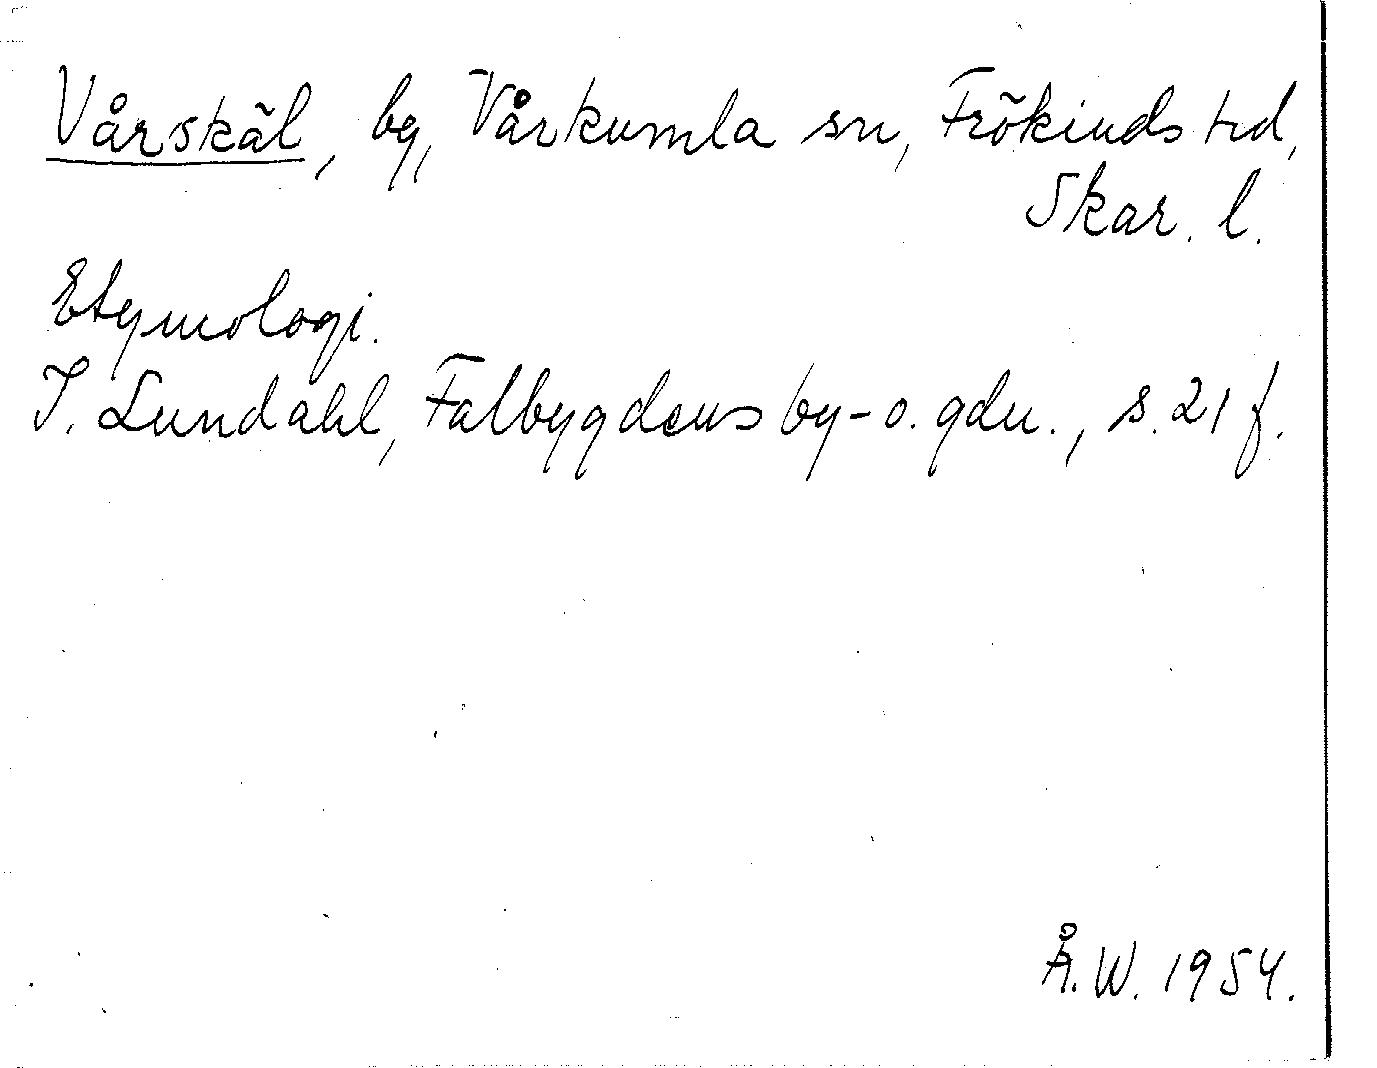 Vårskäl, by, Vårkumla sn, Frökinds hd,
Skar. l.
Etymologi.
I. Lundahl, Falbygdens by- o. gdn., s. 21 f.
Å.W. 1954.